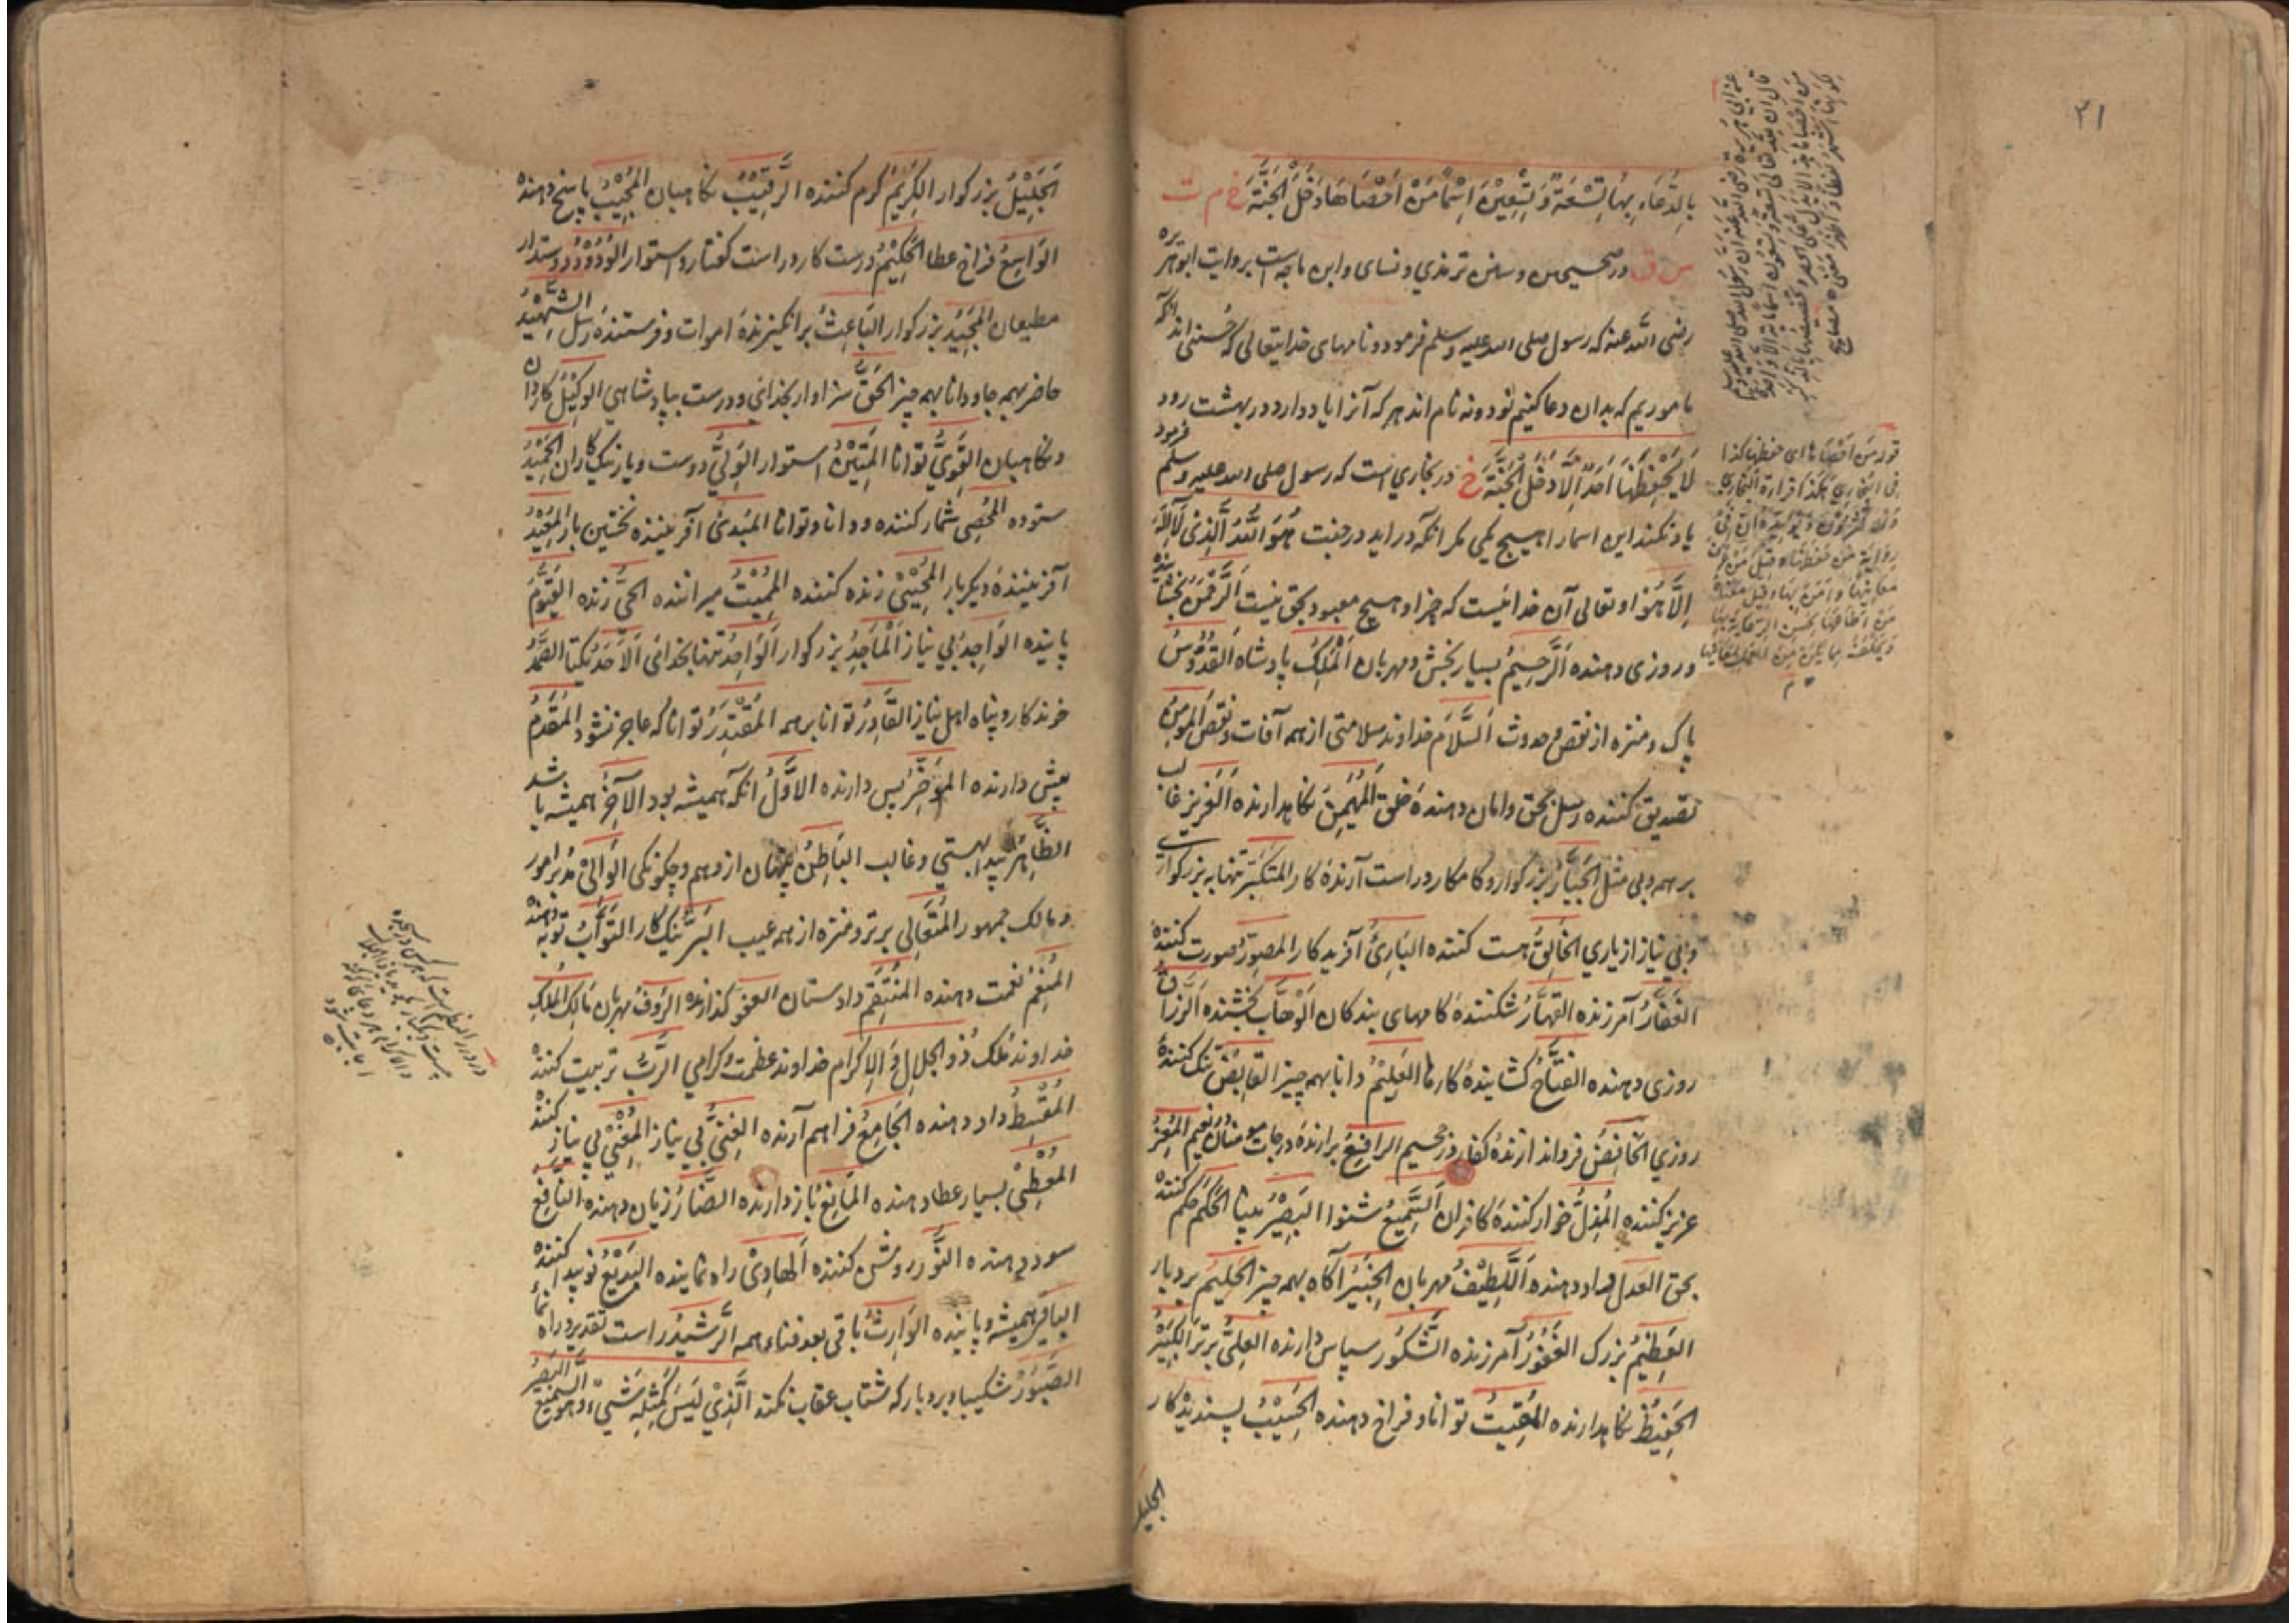 ٢١
بِالدُّعَاءِ بِهَا تِسْعَةً وَتِسْعِيْنَ اِسْمًا مَنْ اَحْصَاهَا دَخَلَ الْجَنَّةَ خ م ت
س ق در صحیحین و سنن ترمذي و نساى و ابن ماجه است بروایت ابو هریره
رضی الله عنه که رسول صلی الله علیه وسلم فرمود و نامهای خدایتعالی که حسنی اند آنکه
ماموریم که بدان دعا کنیم نود و نه نام اند هر که آنرا یاد دارد در بهشت رود
لَا يَحْفَظُهَا اَحَدٌ اِلَّا دَخَلَ الْجَنَّةَ خ در بخاري است که رسول صلی الله علیه وسلم فرمود
یاد نکند این اسما را هیچ یکی مگر انکه در اید در جنت هُوَ اللّٰهُ الَّذِيْ لَا اِلٰهَ
اِلَّا هُوَ او تعالی آن خدائیست که جز او هیچ معبود بحق نیست اَلرَّحْمٰنُ بخشاینده
و روزی دهنده اَلرَّحِيْمُ بسیار بخش و مهربان اَلْمَلِكُ پادشاه اَلْقُدُّوْسُ
پاک و منزه از نقص و حدوث اَلسَّلَامُ خداوند سلامتی از همه آفات و نقص المومِنُ
تصدیق کننده رسل بحق و امان دهندهٔ خلق اَلْمُهَيْمِنُ نکاهدارنده اَلْعَزِيز غالب
بر همه و بی مثل الجَبَّارُ بزرکوار و کامکار و راست آرندهٔ کار المتكَبِّرُ تنها به بزرکواری
و بي نیاز از یاري الخَالِقُ هست کننده البَارِئُ آفریدکار المصَوِّرُ صورت کننده
الغَفَّارُ آمرزنده القهَّارُ شکنندهٔ کامهای بندکان اَلْوَهَّاب بخشنده اَلرَّزاق
روزی دهنده الفتَّاحُ کشایندهٔ کارها العَلِيْمُ دانا بهمه چیز القَابِضُ تنک کنندهٔ
روزي الخَافِضُ فرو اندازندهٔ کفار در جحیم الرافِعُ برارندهٔ درجات مومنان نعیم المُعِزُّ
عزیز کننده المُذِلُّ خوار کنندهٔ کافران اَلسَّمِيْعُ شنوا البَصِيْرُ بینا الحَكَمُ حکم کننده
بحق العَدل داد دهنده اَللَّطِيْفُ مهربان الخَبِيْرُ آکاه بهمه چیز الحَلِيْمُ بردبار
العَظِيْمُ بزرک الغَفُوْرُ آمرزنده الشَّكُوْر سپاس دارنده العَلِيُّ برتر الكَبِيْرُ
الحَفِيْظُ نکاهدارنده المُقِيْتُ توانا و فراخ دهنده الحَسِيْبُ پسندیدکار
الجليل
اَلجَلِيْلُ بزرکوار الكَرِيْمُ کرم کننده الرَّقِيْبُ نکاهبان المُجِيْبُ پاسخ دهنده
الوَاسِعُ فراخ عطا الحَكِيْمُ درست کار و راست کفتار و استوار الوَدُوْدُ دوستدار
مطیعان المَجِيْدُ بزرکوار البَاعِثُ برانکیزندهٔ اموات و فرستندهٔ رسل الشَّهِيْدُ
حاضر بهمه جا و دانا بهمه چیز الحَقُّ سزاوار بخدائی و درست بپادشاهي الوَكِيْلُ کاردان
و نکاهبان القَوِيُّ توانا المَتِيْنُ استوار الوَلِيُّ دوست و یار نیک کاران الحَمِيْدُ
ستوده المُحْصِي شمار کننده و دانا و توانا المُبدِئُ آفریننده نخستین بار المُعِيْدُ
آفرینندهٔ دیکر بار المُحْيِيْ زنده کننده المُمِيْتُ میراننده الحَيُّ زنده القَيُّوْمُ
پاینده الوَاجِدُ بي نیاز اَلْمَاجِدُ بزرکوار اَلوَاحِدُ تنها بخدائی اَلْاَحَدُ یکتا الصَّمَدُ
خوندکار و پناه اهل نیاز القَادِرُ توانا بر همه المُقْتَدِرُ توانا که عاجز نشود المُقَدِّمُ
پیش دارنده المُؤَخِّرُ پس دارنده الاَوَّلُ انکه همیشه بود اَلآخِرُ همیشه باشد
الظَّاهِرُ پیدا بهستي و غالب البَاطِنُ پنهان از وهم و چکونکی الوَالِيْ مدبر امور
و مالک جمهور المُتَعَالِي برتر و منزه از همه عیب البَرُّ نیک کار التَّوَّابُ توبه دهنده
المُنعِمُ نعمت دهنده المُنتَقِمُ داد ستان العفو کذارنده الرَّؤفُ مهربان مَالِكُ الْمُلْكِ
خداوند ملک ذُو الجَلَالِ وَالاِكرَام خداوند عظمت و کرامي الرَّبُّ تربیت کننده
المُقْسِطُ داد دهنده الجَامِعُ فراهم آرنده الغَنِيُّ بي نیاز المُغْنِيْ بی نیاز کننده
المُعْطِيْ بسیار عطا دهنده المَانِعُ باز دارنده الضَّارُّ زیان دهنده النَّافِعُ
سود دهنده النُّورُ روشن کننده اَلهَادِيْ راه نماینده البَدِيْعُ نو پیدا کننده
البَاقِي همیشه و پاینده الوَارِثُ باقی بعد فناء همه الرَّشِيْدُ راست تقدیر و راه نما
الصَّبُوْرُ شکیبا و بردبار که شتاب عقاب نکند الَّذِيْ لَيْسَ كَمِثْلِهِ شَيْءٌ وَهُوَ السَّمِيْعُ البَصِيْرُ